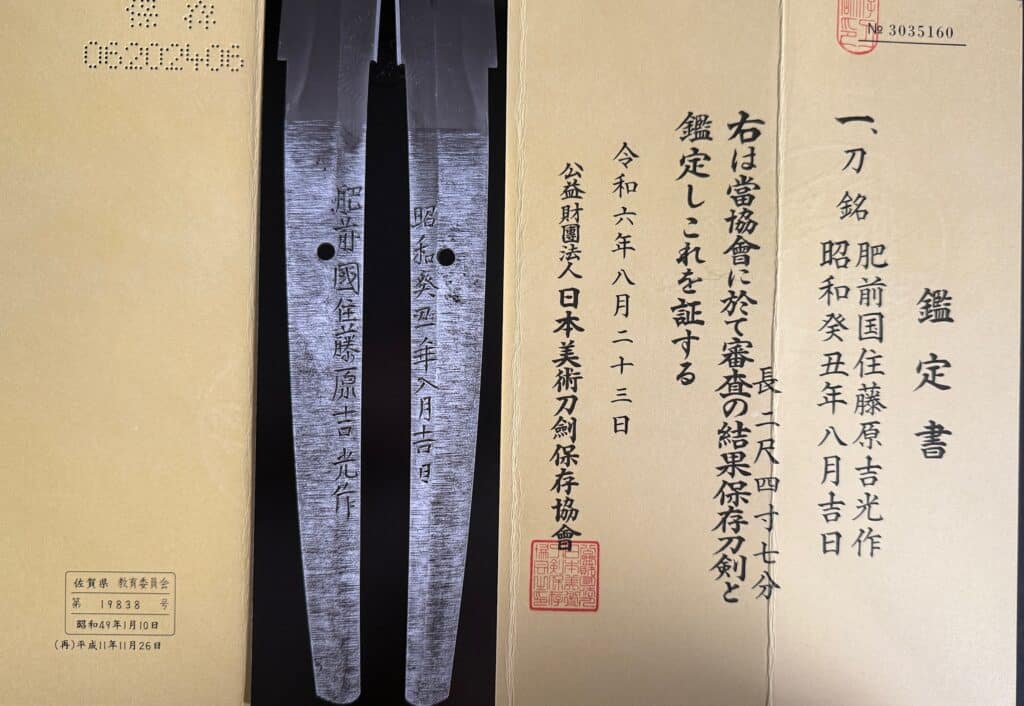 № 3035160
鑑定書
一、刀 銘 肥前国住藤原吉光作
昭和癸丑年八月吉日
長二尺四寸七分
右は當協會に於て審査の結果保存刀剣と
鑑定しこれを証する
令和六年八月二十三日
公益財團法人日本美術刀劍保存協會
昭和癸丑年八月吉日
肥前國住藤原吉光作
保存
06202406
佐賀県 教育委員会
第 19838 号
昭和49年1月10日
(再)平成11年11月26日